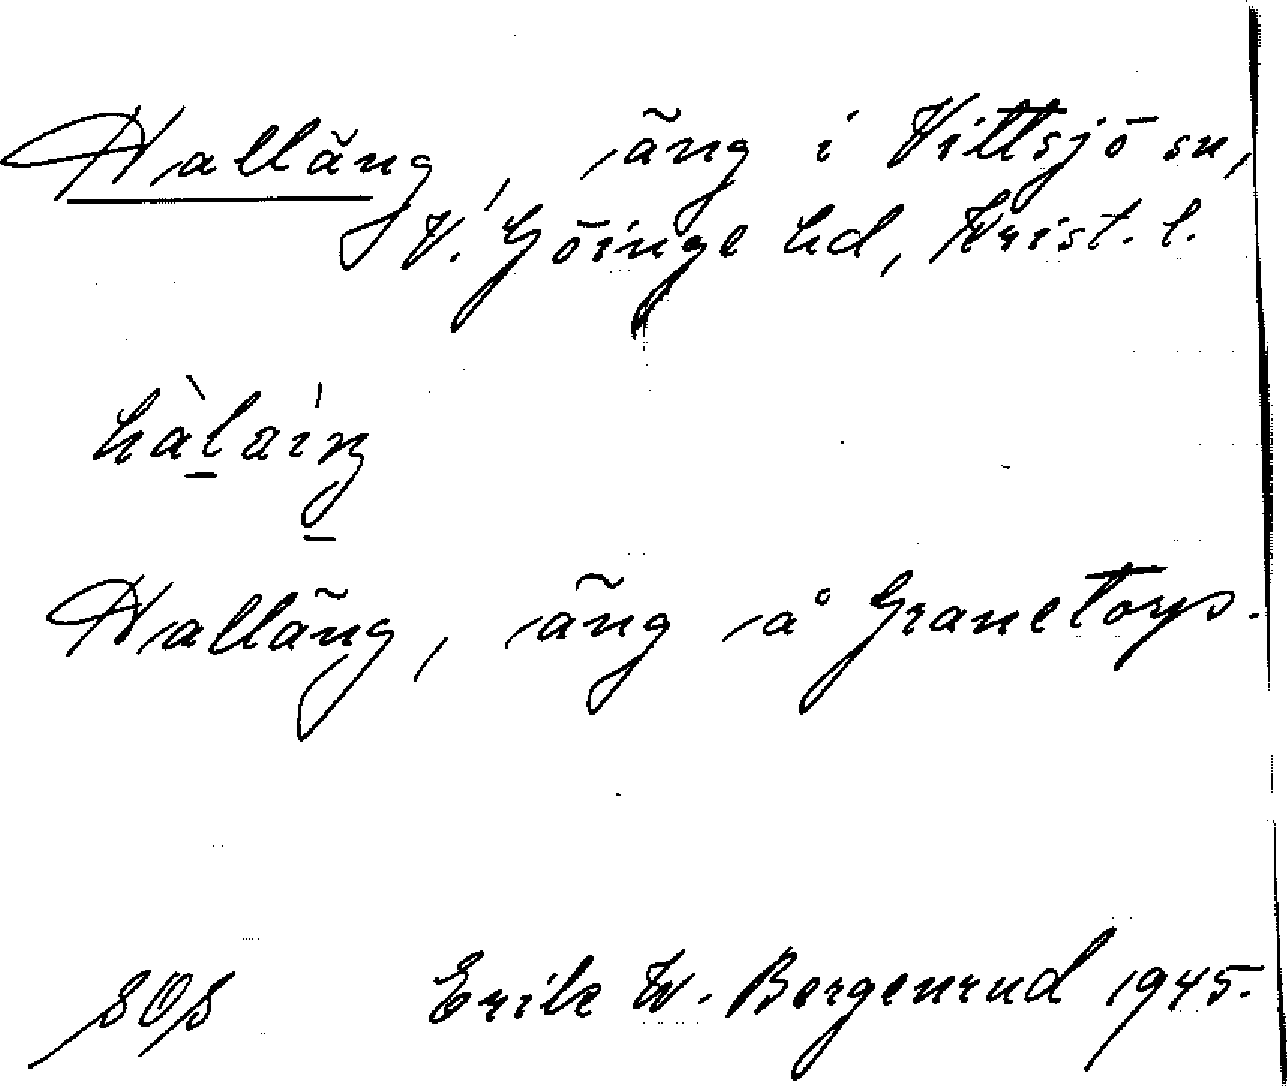 Halläng, äng i Vittsjö sn,
V. Göinge hd, Krist. l.
Halläng, äng å Granetorp.
Erik W. Bergenrud 1945.